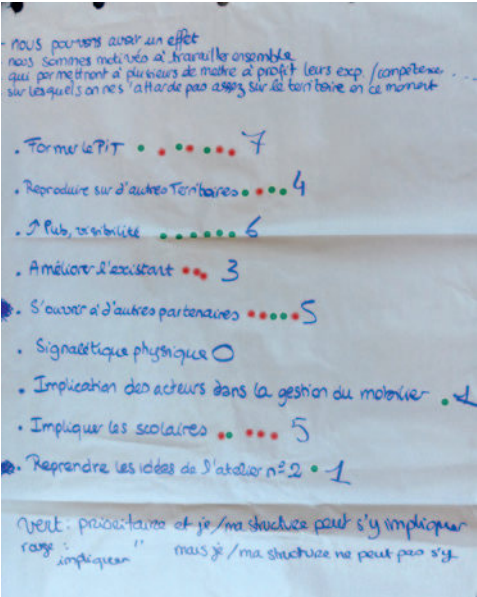 - nous pouvons avoir un effet
nous sommes motivés à travailler ensemble
qui permettront à plusieurs de mettre à profit leurs exp. / compétence ...
sur lesquels on ne s'attarde pas assez sur le territoire en ce moment
. Former le PiT 7
. Reproduire sur d'autres Territoires 4
. ↗ Pub, visibilité 6
. Améliorer l'existant 3
. S'ouvrir à d'autres partenaires 5
. Signalétique physique 0
. Implication des acteurs dans la gestion du mobilier 1
. Impliquer les scolaires 5
. Reprendre les idées de l'atelier n°2 1
vert : prioritaire et je / ma structure peut s'y impliquer
rouge : " mais je / ma structure ne peut pas s'y
impliquer